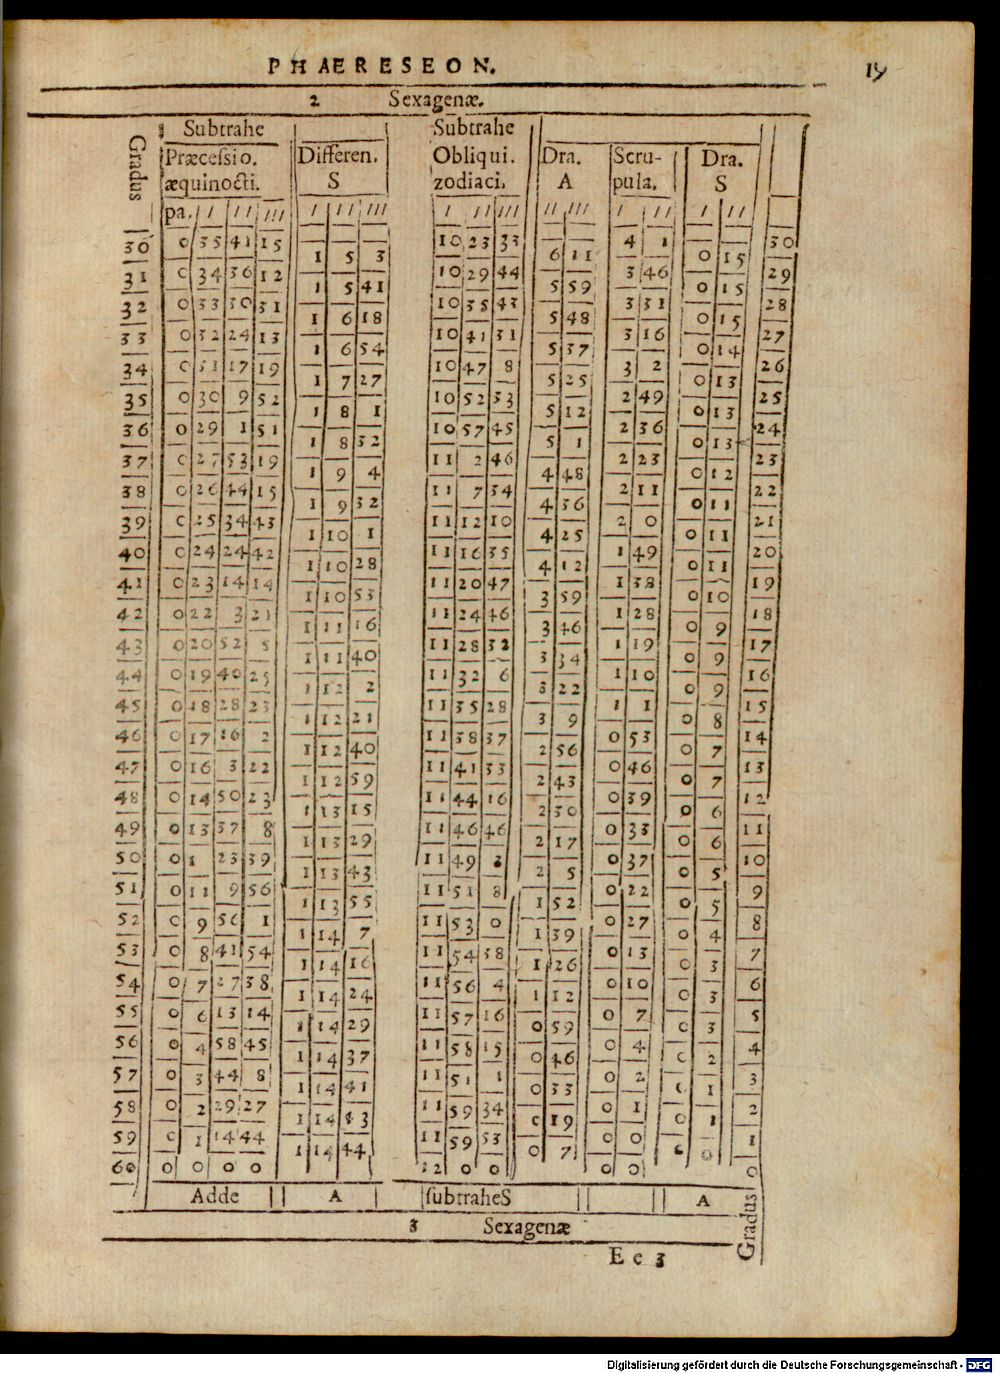 PHAERESEON.
19
2 Sexagenæ.
Gradus Subtrahe Subtrahe
Præcessio. Differen. Obliqui. Dra. Scru- Dra.
æquinocti. S zodiaci. A pula. S
pa. / // /// / // /// / // /// // /// / // / //
30 0 35 41 15 10 23 33 4 1 30
1 5 3 6 11 0 15
31 0 34 36 12 10 29 44 3 46 29
1 5 41 5 59 0 15
32 0 33 30 31 10 35 43 3 31 28
1 6 18 5 48 0 15
33 0 32 24 13 10 41 31 3 16 27
1 6 54 5 37 0 14
34 0 31 17 19 10 47 8 3 2 26
1 7 27 5 25 0 13
35 0 30 9 52 10 52 33 2 49 25
1 8 1 5 12 0 13
36 0 29 1 51 10 57 45 2 36 24
1 8 32 5 1 0 13
37 0 27 53 19 11 2 46 2 23 23
1 9 4 4 48 0 12
38 0 26 44 15 11 7 34 2 11 22
1 9 32 4 36 0 11
39 0 25 34 43 11 12 10 2 0 21
1 10 1 4 25 0 11
40 0 24 24 42 11 16 35 1 49 20
1 10 28 4 12 0 11
41 0 23 14 14 11 20 47 1 38 19
1 10 53 3 59 0 10
42 0 22 3 21 11 24 46 1 28 18
1 11 16 3 46 0 9
43 0 20 52 5 11 28 32 1 19 17
1 11 40 3 34 0 9
44 0 19 40 25 11 32 6 1 10 16
1 12 2 3 22 0 9
45 0 18 28 23 11 35 28 1 1 15
1 12 21 3 9 0 8
46 0 17 16 2 11 38 37 0 53 14
1 12 40 2 56 0 7
47 0 16 3 22 11 41 33 0 46 13
1 12 59 2 43 0 7
48 0 14 50 23 11 44 16 0 39 12
1 13 15 2 30 0 6
49 0 13 37 8 11 46 46 0 33 11
1 13 29 2 17 0 6
50 0 1 23 39 11 49 3 0 37 10
1 13 43 2 5 0 5
51 0 11 9 56 11 51 8 0 22 9
1 13 55 1 52 0 5
52 0 9 56 1 11 53 0 0 27 8
1 14 7 1 39 0 4
53 0 8 41 54 11 54 38 0 13 7
1 14 16 1 26 0 3
54 0 7 27 38 11 56 4 0 10 6
1 14 24 1 12 0 3
55 0 6 13 14 11 57 16 0 7 5
1 14 29 0 59 0 3
56 0 4 58 45 11 58 15 0 4 4
1 14 37 0 46 0 2
57 0 3 44 8 11 51 1 0 2 3
1 14 41 0 33 0 1
58 0 2 29 27 11 59 34 0 1 2
1 14 43 0 19 0 1
59 0 1 14 44 11 59 53 0 0 1
1 14 44 0 7 0 0
60 0 0 0 0 12 0 0 0 0 0
Adde A subtraheS A Gradus
3 Sexagenæ
E e 3
Digitalisierung gefördert durch die Deutsche Forschungsgemeinschaft - DFG